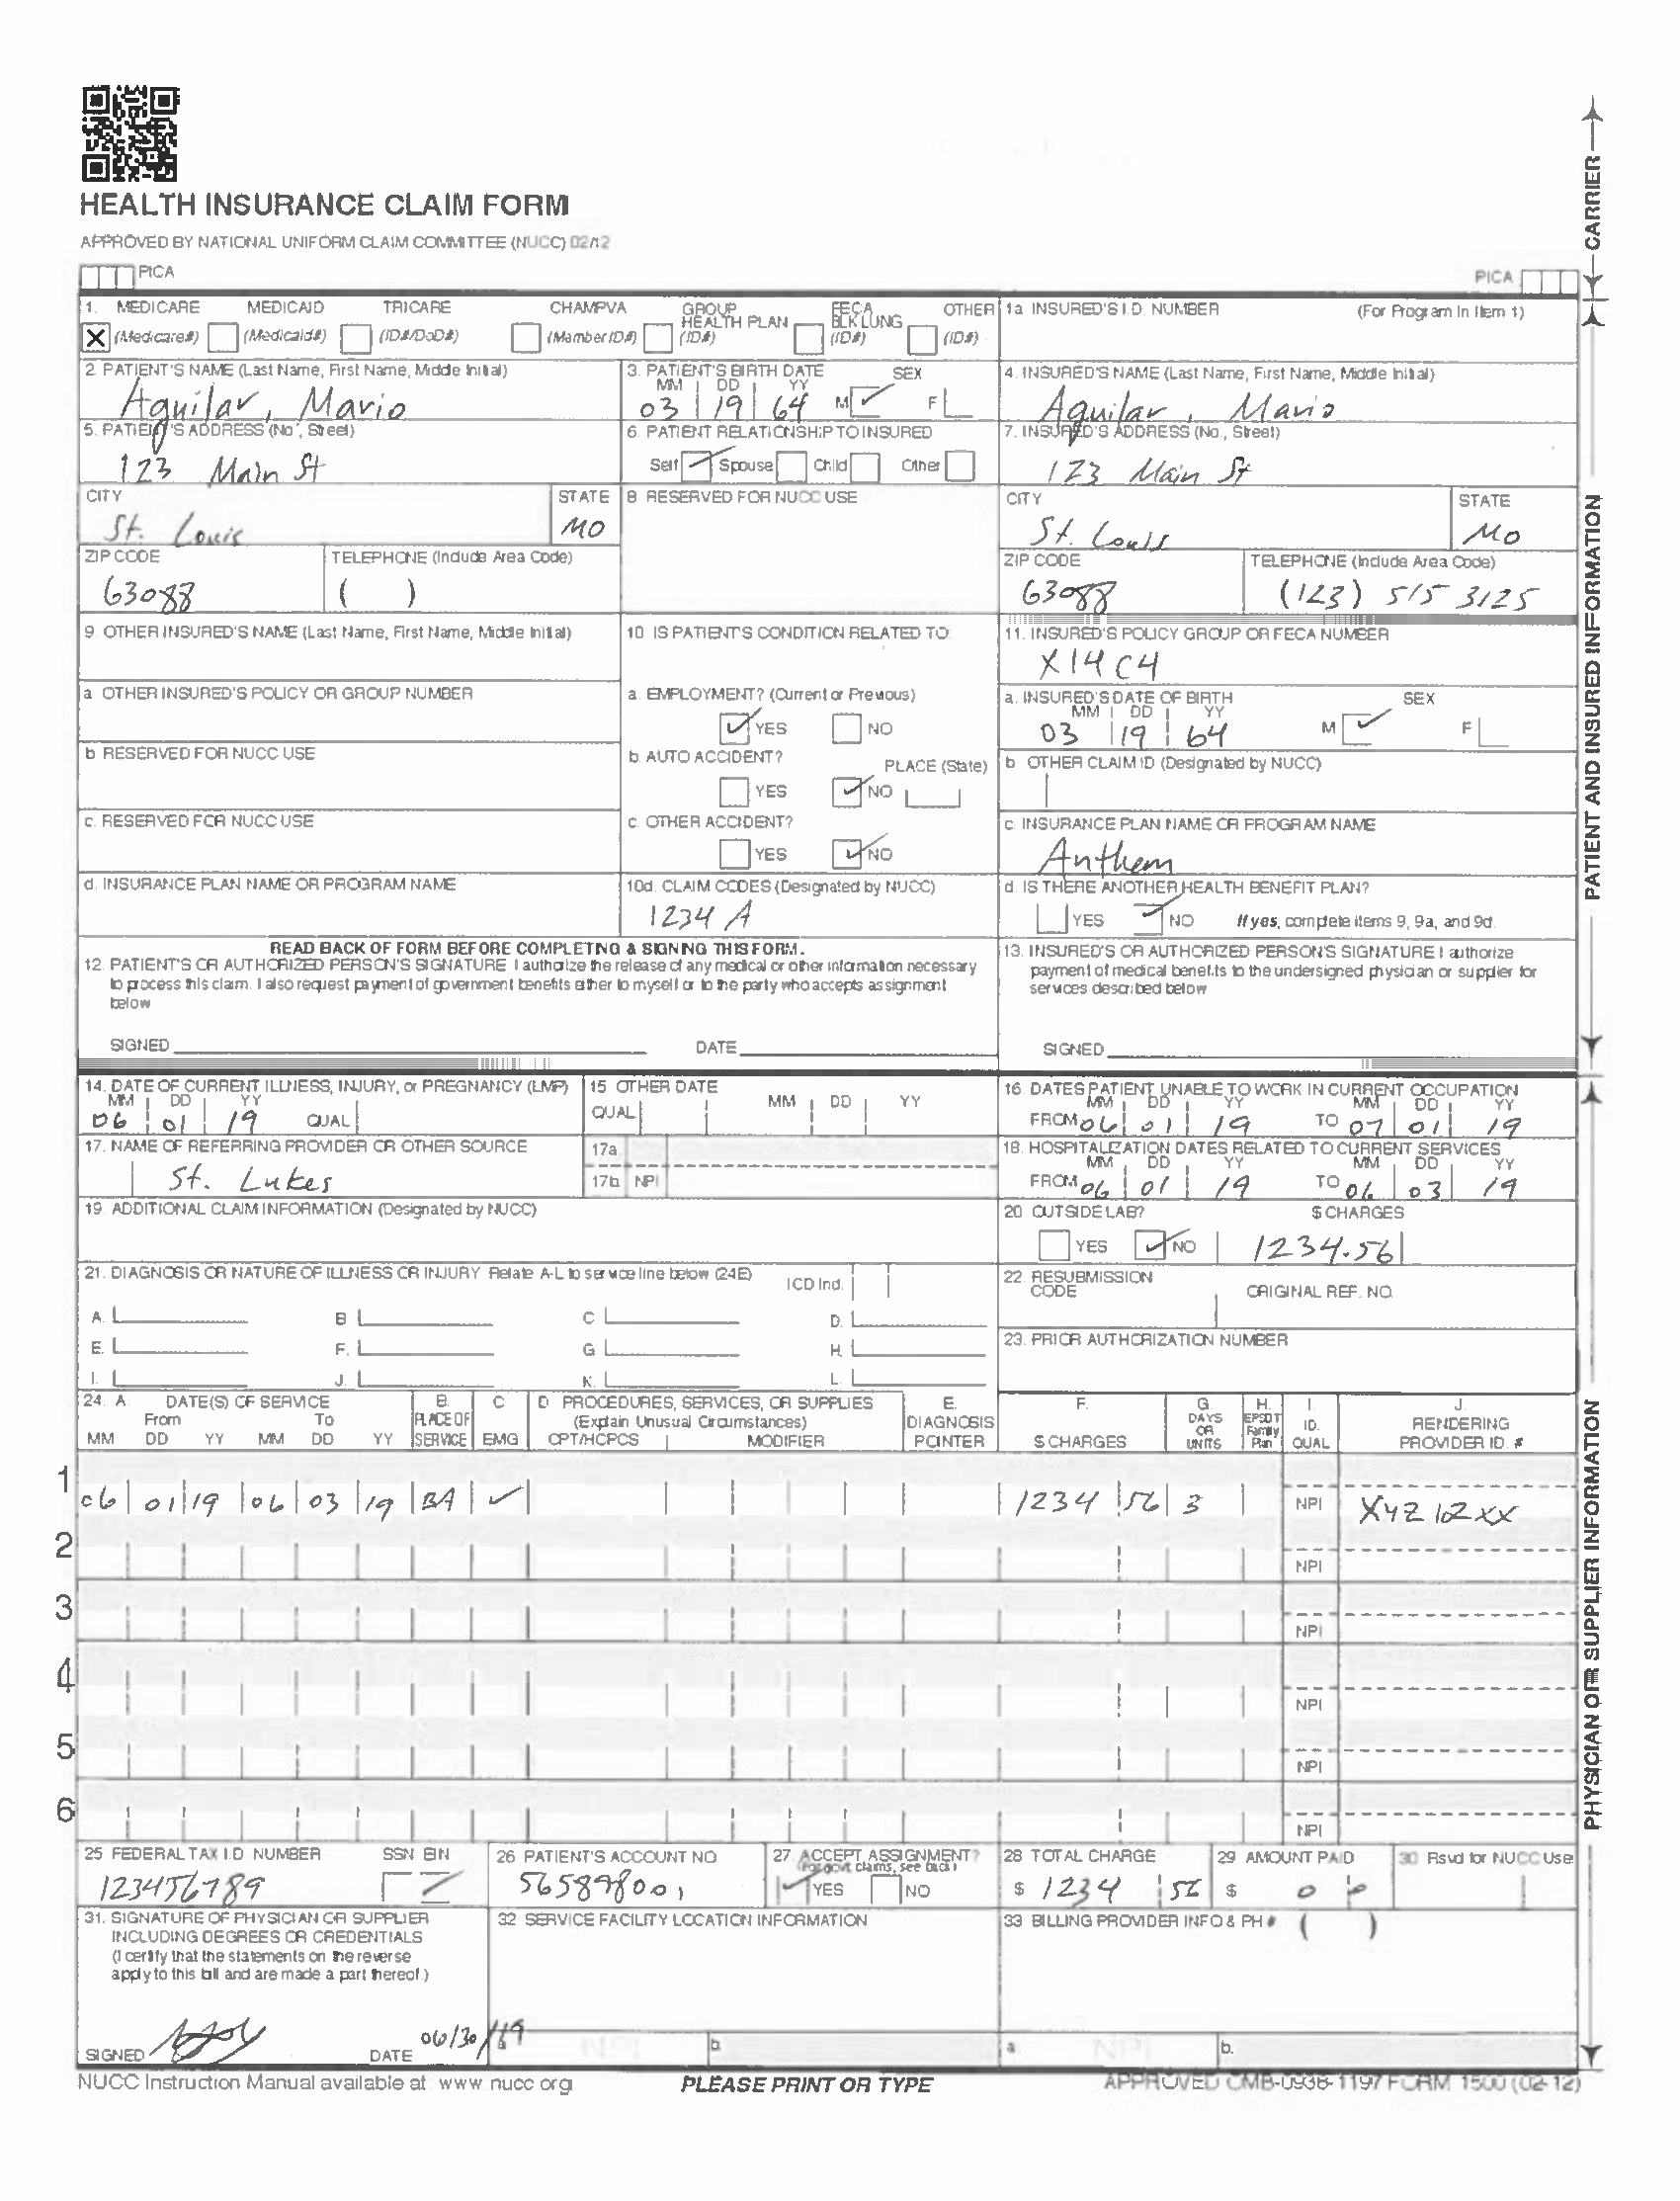 HEALTH INSURANCE CLAIM FORM
APPROVED BY NATIONAL UNIFORM CLAIM COMMITTEE (NUCC) 02/12
PICA PICA
CARRIER
1. MEDICARE MEDICAID TRICARE CHAMPVA GROUP HEALTH PLAN FECA BLK LUNG OTHER
X (Medicare#) (Medicaid#) (ID#/DoD#) (Member ID#) (ID#) (ID#) (ID#)
1a INSURED'S I.D. NUMBER (For Program In Item 1)
2. PATIENT'S NAME (Last Name, First Name, Middle Initial)
Aguilar, Mario
3. PATIENT'S BIRTH DATE SEX
MM DD YY
03 19 64 M F
4. INSURED'S NAME (Last Name, First Name, Middle Initial)
Aguilar, Mario
5. PATIENT'S ADDRESS (No., Street)
123 Main St
6. PATIENT RELATIONSHIP TO INSURED
Self Spouse Child Other
7. INSURED'S ADDRESS (No., Street)
123 Main St
CITY STATE
St. Louis MO
8 RESERVED FOR NUCC USE
CITY STATE
St. Louis MO
ZIP CODE TELEPHONE (Include Area Code)
63088 ( )
ZIP CODE TELEPHONE (Include Area Code)
63088 (123) 515 3125
PATIENT AND INSURED INFORMATION
9. OTHER INSURED'S NAME (Last Name, First Name, Middle Initial)
10. IS PATIENT'S CONDITION RELATED TO:
11. INSURED'S POLICY GROUP OR FECA NUMBER
X14C4
a. OTHER INSURED'S POLICY OR GROUP NUMBER
a. EMPLOYMENT? (Current or Previous)
YES NO
a. INSURED'S DATE OF BIRTH SEX
MM DD YY
03 19 64 M F
b. RESERVED FOR NUCC USE
b. AUTO ACCIDENT? PLACE (State)
YES NO
b. OTHER CLAIM ID (Designated by NUCC)
c. RESERVED FOR NUCC USE
c. OTHER ACCIDENT?
YES NO
c. INSURANCE PLAN NAME OR PROGRAM NAME
Anthem
d. INSURANCE PLAN NAME OR PROGRAM NAME
10d. CLAIM CODES (Designated by NUCC)
1234 A
d. IS THERE ANOTHER HEALTH BENEFIT PLAN?
YES NO If yes, complete items 9, 9a, and 9d.
READ BACK OF FORM BEFORE COMPLETING & SIGNING THIS FORM.
12. PATIENT'S OR AUTHORIZED PERSON'S SIGNATURE I authorize the release of any medical or other information necessary
to process this claim. I also request payment of government benefits either to myself or to the party who accepts assignment
below
SIGNED DATE
13. INSURED'S OR AUTHORIZED PERSON'S SIGNATURE I authorize
payment of medical benefits to the undersigned physician or supplier for
services described below
SIGNED
14. DATE OF CURRENT ILLNESS, INJURY, or PREGNANCY (LMP)
MM DD YY
06 01 19 QUAL
15 OTHER DATE
QUAL MM DD YY
16 DATES PATIENT UNABLE TO WORK IN CURRENT OCCUPATION
MM DD YY MM DD YY
FROM 06 01 19 TO 07 01 19
17. NAME OF REFERRING PROVIDER OR OTHER SOURCE
St. Lukes
17a
17b NPI
18. HOSPITALIZATION DATES RELATED TO CURRENT SERVICES
MM DD YY MM DD YY
FROM 06 01 19 TO 06 03 19
19. ADDITIONAL CLAIM INFORMATION (Designated by NUCC)
20 OUTSIDE LAB? $ CHARGES
YES NO 1234.56
21. DIAGNOSIS OR NATURE OF ILLNESS OR INJURY Relate A-L to service line below (24E) ICD Ind.
A. B C D.
E. F. G H.
I. J. K. L.
22. RESUBMISSION CODE ORIGINAL REF. NO.
23. PRIOR AUTHORIZATION NUMBER
24. A. DATE(S) OF SERVICE B. C D PROCEDURES, SERVICES, OR SUPPLIES E. F. G. H. I. J.
From To PLACE OF SERVICE EMG (Explain Unusual Circumstances) DIAGNOSIS POINTER $ CHARGES DAYS OR UNITS EPSDT Family Plan ID. QUAL RENDERING PROVIDER ID. #
MM DD YY MM DD YY CPT/HCPCS MODIFIER
1 06 01 19 06 03 19 BA 1234 56 3 NPI XYZ12XX
2 NPI
3 NPI
4 NPI
5 NPI
6 NPI
PHYSICIAN OR SUPPLIER INFORMATION
25 FEDERAL TAX I.D NUMBER SSN EIN
123456789
26 PATIENT'S ACCOUNT NO
565898001
27. ACCEPT ASSIGNMENT?
(For govt. claims, see back)
YES NO
28 TOTAL CHARGE
$ 1234 56
29 AMOUNT PAID
$ 0
30 Rsvd for NUCC Use
31. SIGNATURE OF PHYSICIAN OR SUPPLIER
INCLUDING DEGREES OR CREDENTIALS
(I certify that the statements on the reverse
apply to this bill and are made a part thereof.)
SIGNED DATE 06/30/19
32 SERVICE FACILITY LOCATION INFORMATION
a NPI b.
33 BILLING PROVIDER INFO & PH # ( )
a. NPI b.
NUCC Instruction Manual available at: www nucc org
PLEASE PRINT OR TYPE
APPROVED OMB-0938-1197 FORM 1500 (02-12)